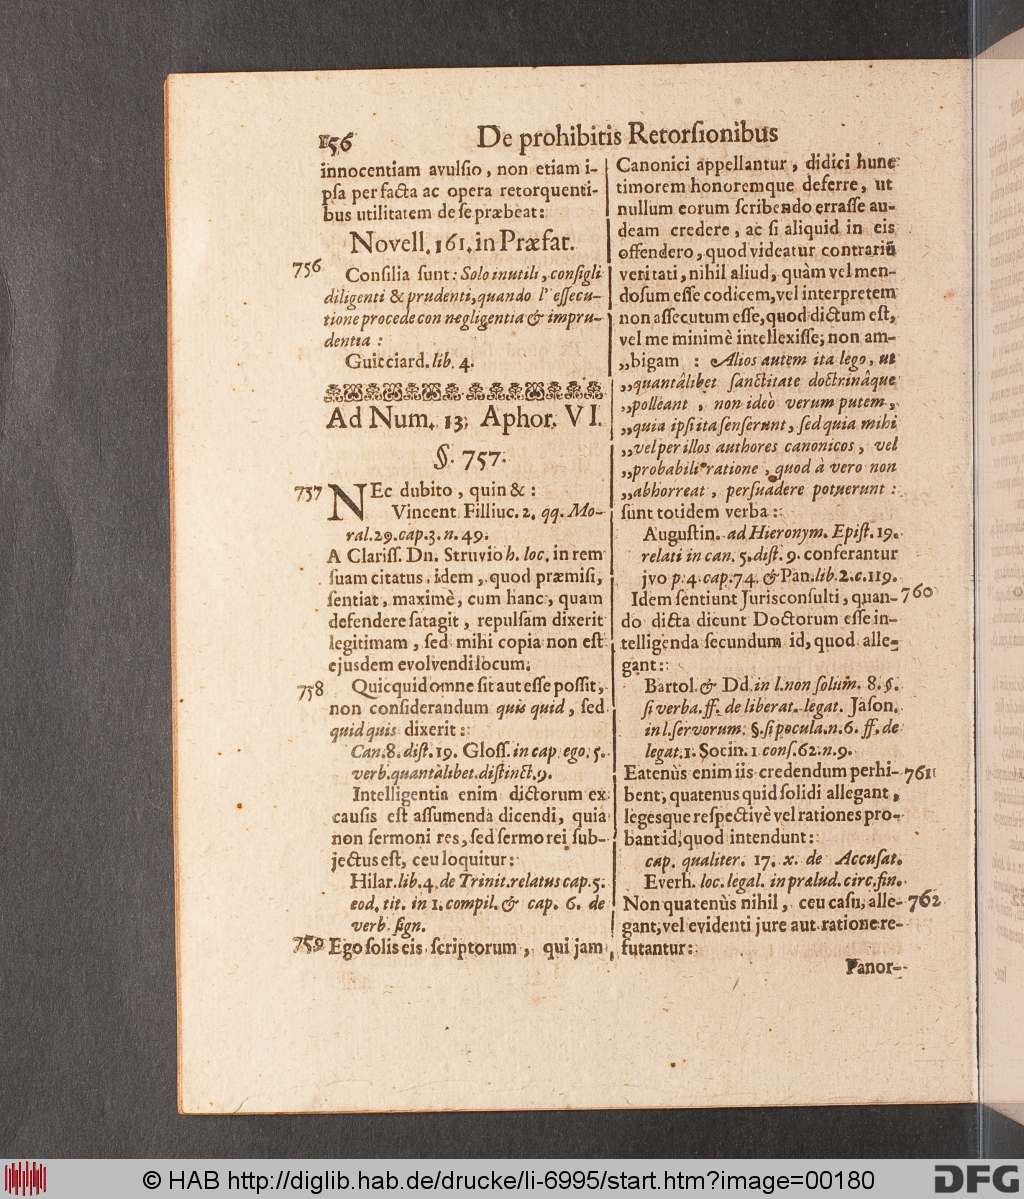 156 De prohibitis Retorſionibus
innocentiam avulſio, non etiam i-
pſa per facta ac opera retorquenti-
bus utilitatem de ſe præbeat:
Novell. 161. in Præfat.
756 Conſilia ſunt: Solo inutili, conſigli
diligenti & prudenti, quando l' eſſecu-
tione procede con negligentia & impru-
dentia:
Guicciard. lib. 4.
Ad Num. 13. Aphor. VI.
§. 757.
757 NEc dubito, quin &:
Vincent. Filliuc. 2. qq. Mo-
ral. 29. cap. 3. n. 49.
A Clariſſ. Dn. Struvio h. loc. in rem
ſuam citatus, idem, quod præmiſi,
ſentiat, maximè, cum hanc, quam
defendere ſatagit, repulſam dixerit
legitimam, ſed mihi copia non eſt
ejusdem evolvendi locum.
758 Quicquid omne ſit aut eſſe poſſit,
non conſiderandum quis quid, ſed
quid quis dixerit:
Can. 8. diſt. 19. Gloſſ. in cap. ego. 5.
verb. quantalibet. diſtinct. 9.
Intelligentia enim dictorum ex
cauſis eſt aſſumenda dicendi, quia
non ſermoni res, ſed ſermo rei ſub-
jectus eſt, ceu loquitur:
Hilar. lib. 4. de Trinit. relatus cap. 5.
eod. tit. in 1. compil. & cap. 6. de
verb. ſign.
759 Ego ſolis eis ſcriptorum, qui jam
Canonici appellantur, didici hunc
timorem honoremque deferre, ut
nullum eorum ſcribendo erraſſe au-
deam credere, ac ſi aliquid in eis
offendero, quod videatur contrariũ
veritati, nihil aliud, quàm vel men-
doſum eſſe codicem, vel interpretem
non aſſecutum eſſe, quod dictum eſt,
vel me minimè intellexiſſe, non am-
„bigam: Alios autem ita lego, ut
„quantâlibet ſanctitate doctrinâque
„polleant, non ideò verum putem,
„quia ipſi ita ſenſerunt, ſed quia mihi
„vel per illos authores canonicos, vel
„probabili ratione, quod à vero non
„abhorreat, perſuadere potuerunt:
ſunt totidem verba:
Auguſtin. ad Hieronym. Epiſt. 19.
relati in can. 5. diſt. 9. conferantur
jvo p. 4. cap. 74. & Pan. lib. 2. c. 119.
Idem ſentiunt Jurisconſulti, quan- 760
do dicta dicunt Doctorum eſſe in-
telligenda ſecundum id, quod alle-
gant:
Bartol. & Dd. in l. non ſolùm. 8. §.
ſi verba. ff. de liberat. legat. Jaſon.
in l. ſervorum. §. ſi pocula. n. 6. ff. de
legat. 1. Socin. 1 conſ. 62. n. 9.
Eatenùs enim iis credendum perhi- 761
bent, quatenus quid ſolidi allegant,
legesque reſpectivè vel rationes pro-
bant id, quod intendunt:
cap. qualiter. 17. x. de Accuſat.
Everh. loc. legal. in prælud. circ. fin.
Non quatenùs nihil, ceu caſu, alle- 762
gant, vel evidenti jure aut ratione re-
futantur:
Panor-
© HAB http://diglib.hab.de/drucke/li-6995/start.htm?image=00180
DFG